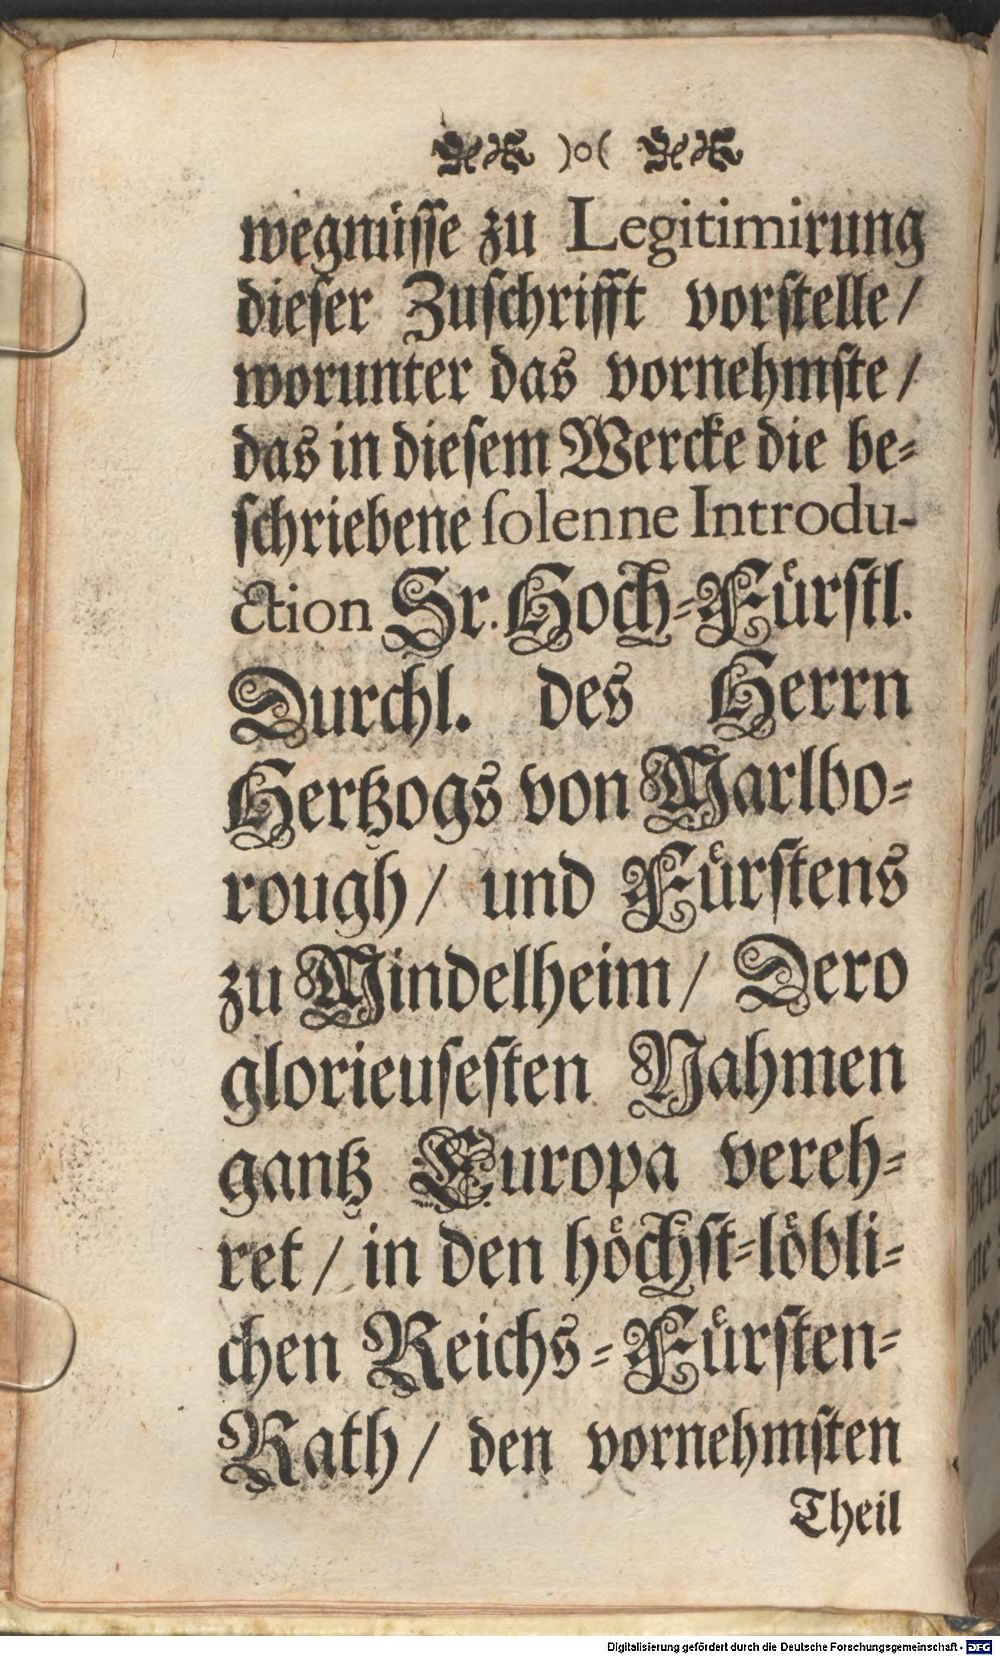 )o(
wegnüsse zu Legitimirung
dieser Zuschrifft vorstelle/
worunter das vornehmste/
das in diesem Wercke die be-
schriebene solenne Introdu-
ction Sr. Hoch-Fürstl.
Durchl. des Herrn
Hertzogs von Marlbo-
rough/ und Fürstens
zu Mindelheim/ Dero
glorieusesten Nahmen
gantz Europa vereh-
ret/ in den höchst-löbli-
chen Reichs-Fürsten-
Rath/ den vornehmsten
Theil
Digitalisierung gefördert durch die Deutsche Forschungsgemeinschaft - DFG